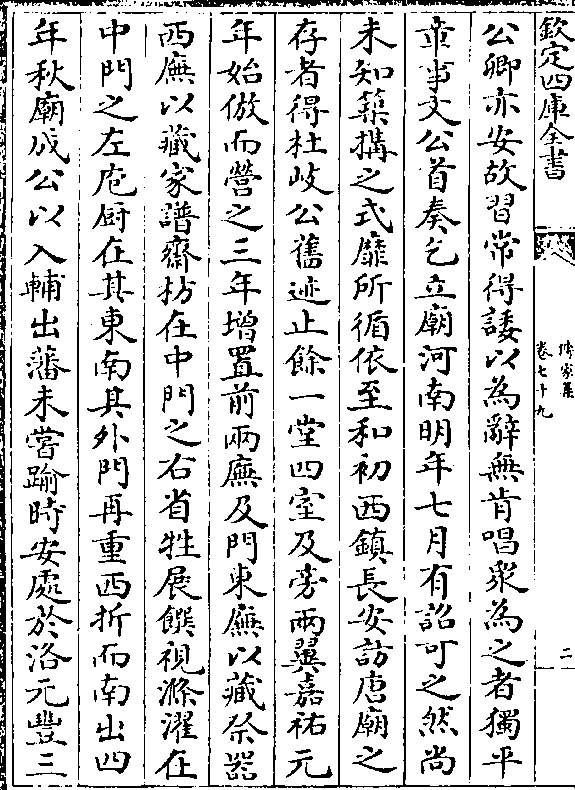 欽定四庫全書
傳家集
卷七十九
二
公卿亦安故習常得諉以為辭無肯唱衆為之者獨平
章事文公首奏乞立廟河南明年七月有詔可之然尚
未知築構之式靡所循依至和初西鎮長安訪唐廟之
存者得杜岐公舊迹止餘一堂四室及旁兩翼嘉祐元
年始倣而營之三年增置前兩廡及門東廡以藏祭器
西廡以藏家譜齋枋在中門之右省牲展饌視滌濯在
中門之左庖厨在其東南其外門再重西折而南出四
年秋廟成公以入輔出藩未嘗踰時安處於洛元豐三